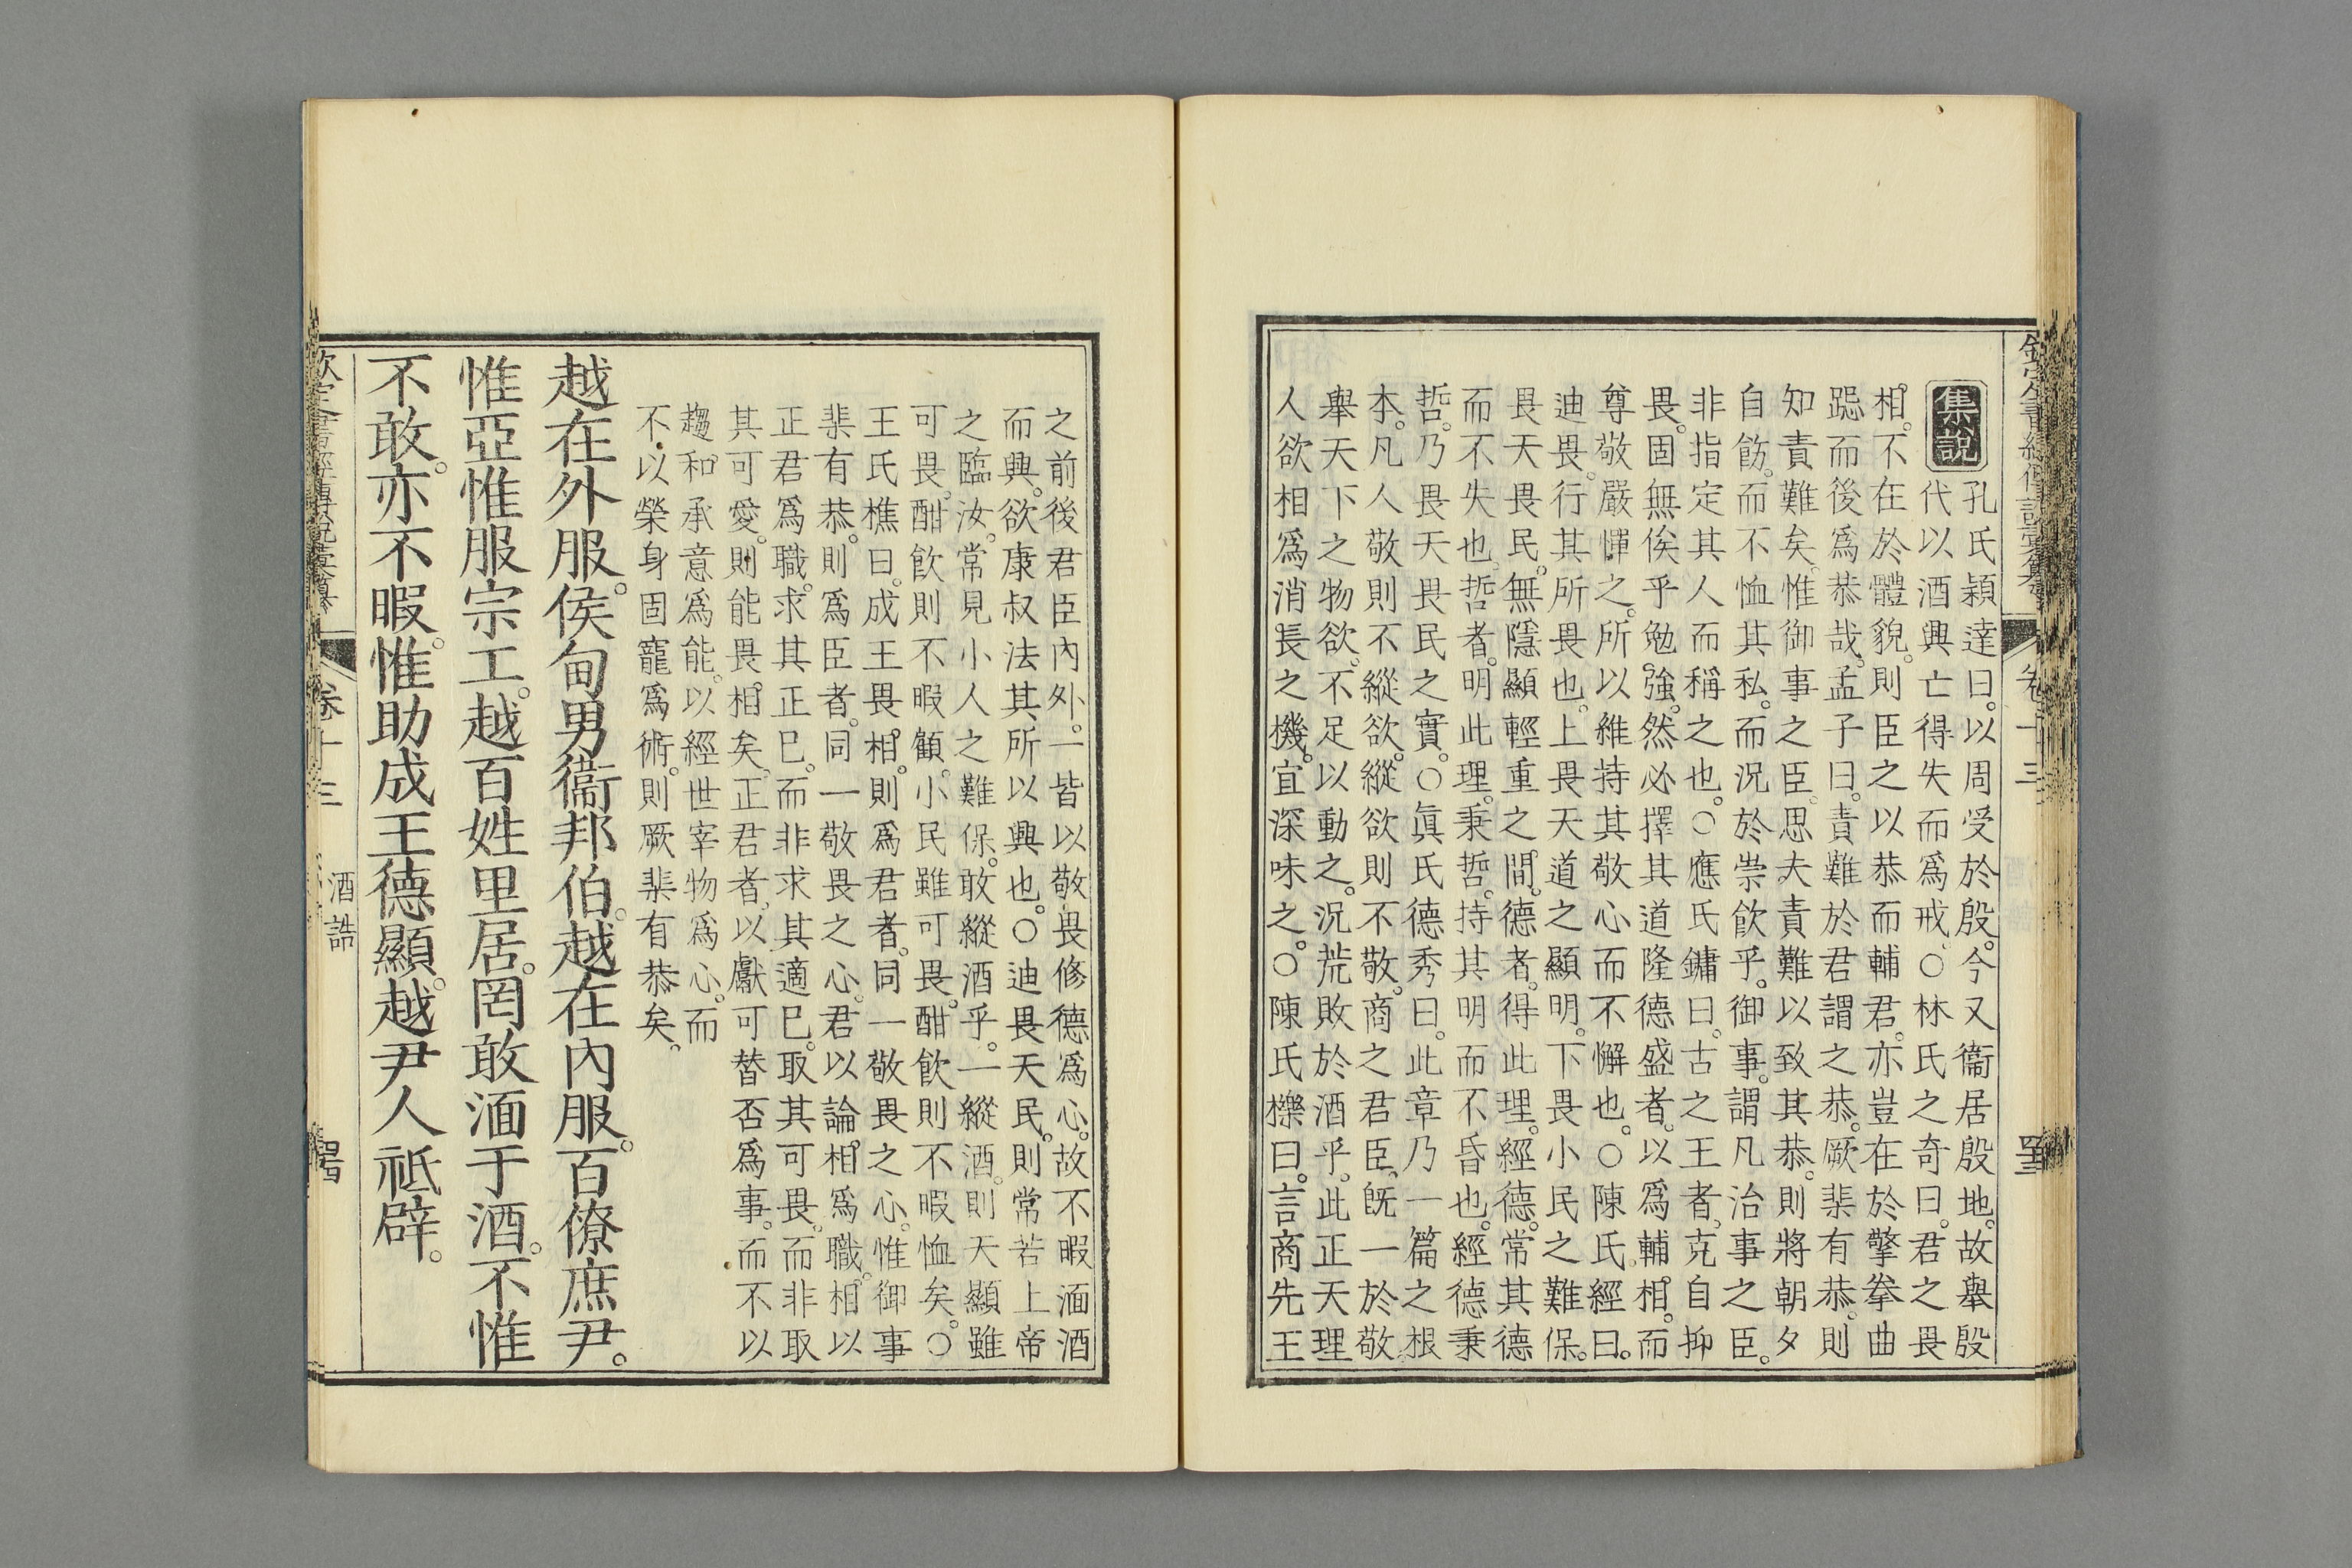 欽定書經傳說彙纂 卷十三
集說
孔氏穎達曰。以周受於殷。今又衞居殷地。故舉殷
代以酒興亡得失而爲戒。○林氏之奇曰。君之畏
相。不在於體貌。則臣之以恭而輔君。亦豈在於擎拳曲
跽而後爲恭哉。孟子曰。責難於君謂之恭。厥棐有恭。則
知責難矣。惟御事之臣。思夫責難以致其恭。則將朝夕
自飭。而不恤其私。而況於崇飮乎。御事。謂凡治事之臣。
非指定其人而稱之也。○應氏鏞曰。古之王者。克自抑
畏。固無俟乎勉強。然必擇其道隆德盛者。以爲輔相。而
尊敬嚴憚之。所以維持其敬心而不懈也。○陳氏經曰。
迪畏。行其所畏也。上畏天道之顯明。下畏小民之難保。
畏天畏民。無隱顯輕重之間。德者。得此理。經德。常其德
而不失也。哲者。明此理。秉哲。持其明而不昏也。經德秉
哲。乃畏天畏民之實。○眞氏德秀曰。此章乃一篇之根
本。凡人敬則不縱欲。縱欲則不敬。商之君臣。旣一於敬。
舉天下之物欲。不足以動之。況荒敗於酒乎。此正天理
人欲相爲消長之機。宜深味之。○陳氏櫟曰。言商先王
之前後君臣內外。一皆以敬畏修德爲心。故不暇湎酒
而興。欲康叔法其所以興也。○迪畏天民。則常若上帝
之臨汝。常見小人之難保。敢縱酒乎。一縱酒。則天顯雖
可畏。酣飮則不暇顧。小民雖可畏。酣飮則不暇恤矣。○
王氏樵曰。成王畏相。則爲君者。同一敬畏之心。惟御事
棐有恭。則爲臣者。同一敬畏之心。君以論相爲職。相以
正君爲職。求其正已。而非求其適已。取其可畏。而非取
其可愛。則能畏相矣。正君者。以獻可替否爲事。而不以
趨和承意爲能。以經世宰物爲心。而
不以榮身固寵爲術。則厥棐有恭矣。
越在外服。侯甸男衞邦伯。越在內服。百僚庶尹。
惟亞惟服宗工。越百姓里居。罔敢湎于酒。不惟
不敢。亦不暇。惟助成王德顯。越尹人祗辟。
欽定書經傳說彙纂 卷十三 酒誥